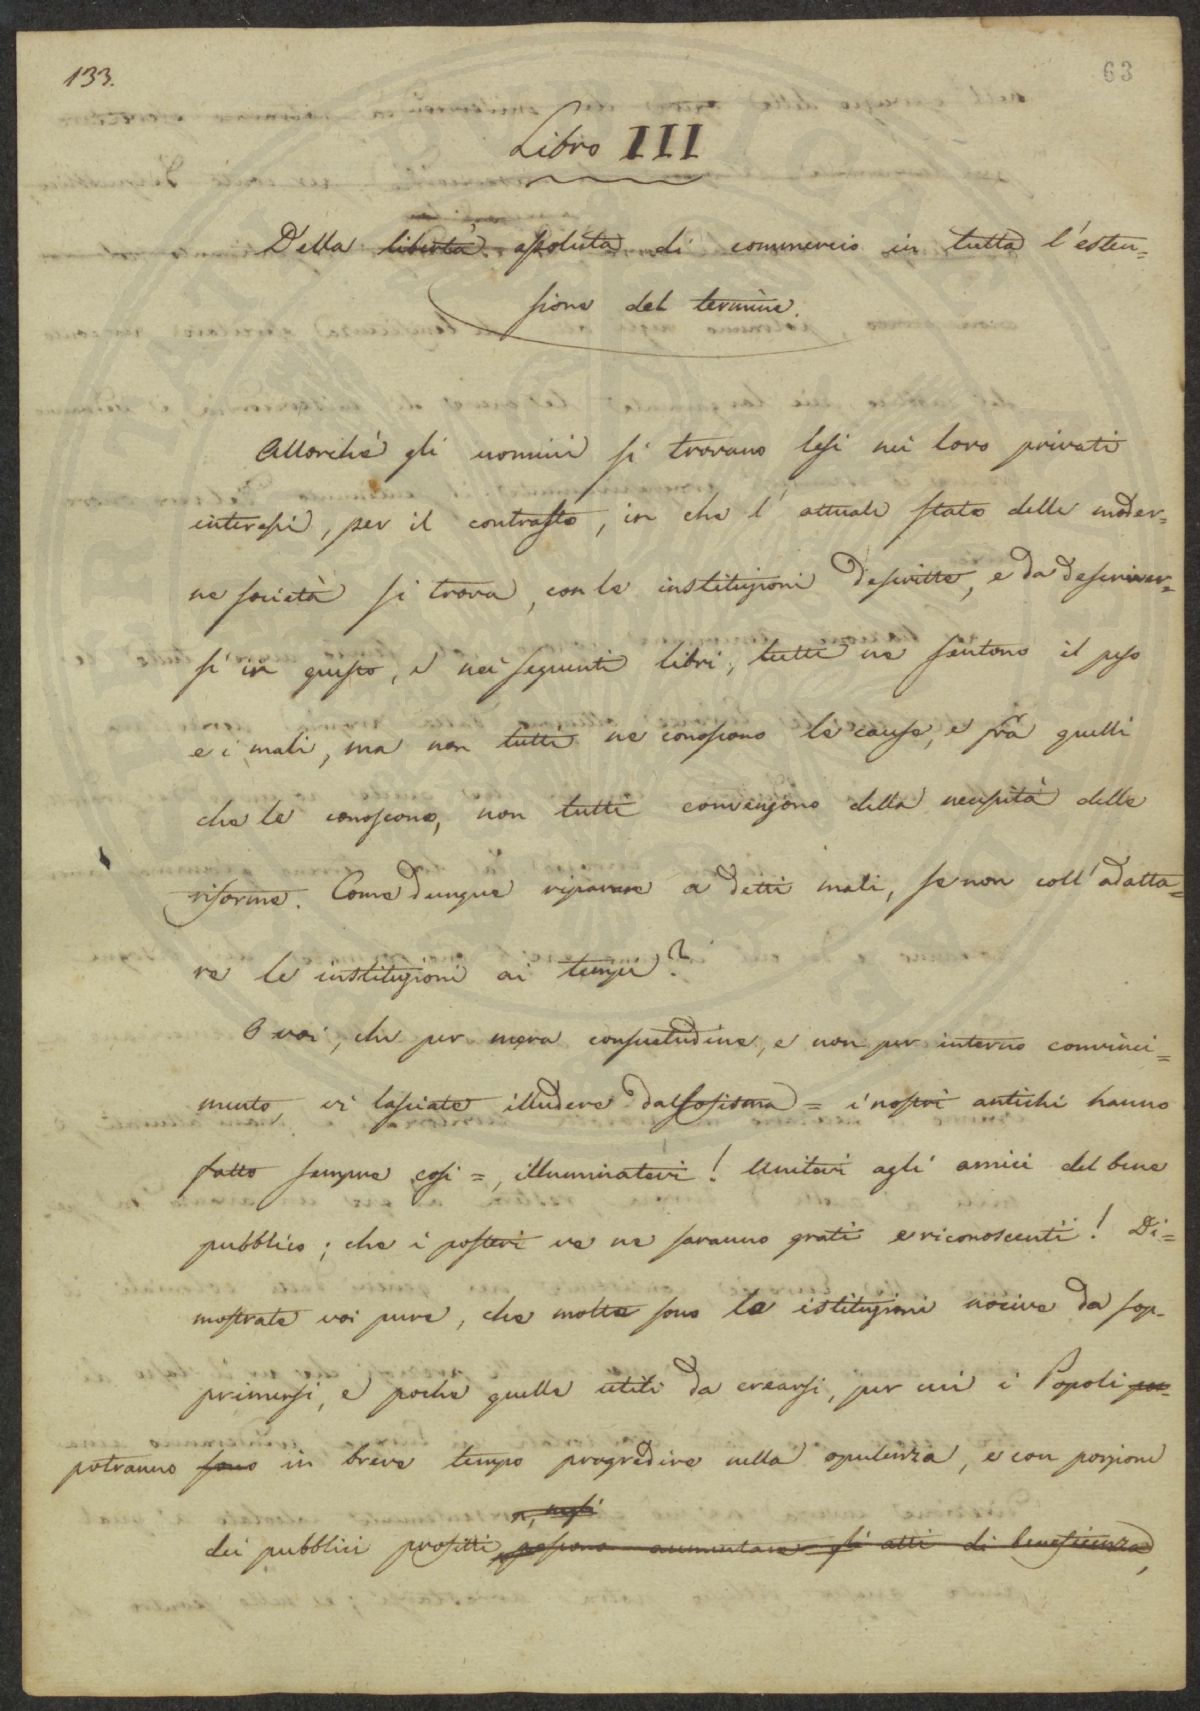 133.
63
Libro III
Della libertà assoluta di commercio in tutta l'esten=
sione del termine.
Allorché gli uomini si trovano lesi nei loro privati
interessi, per il contrasto, in che l'attuale stato delle moder=
ne società si trova, con le instituzioni descritte, e da descriver=
si in questo, e nei seguenti libri, tutti ne sentono il peso
e i mali, ma non tutti ne conoscono le cause, e frà quelli
che le conoscono, non tutti convengono della necessità delle
riforme. Come dunque riparare a detti mali, se non coll'adatta=
re le instituzioni ai tempi?
O voi, che per mera consuetudine, e non per interno convinci=
mento, vi lasciate illudere dal sofisma = i nostri antichi hanno
fatto sempre così =, illuminatevi! Unitevi agli amici del bene
pubblico; che i posteri ve ne saranno grati e riconoscenti! Di=
mostrate voi pure, che molte sono le istituzioni nocive da sop=
primersi, e poche quelle utili da crearsi, per cui i Popoli po=
potranno sono in breve tempo progredire nella opulenza, e con porzione
dei pubblici profitti possono aumentare gli atti di beneficenza,